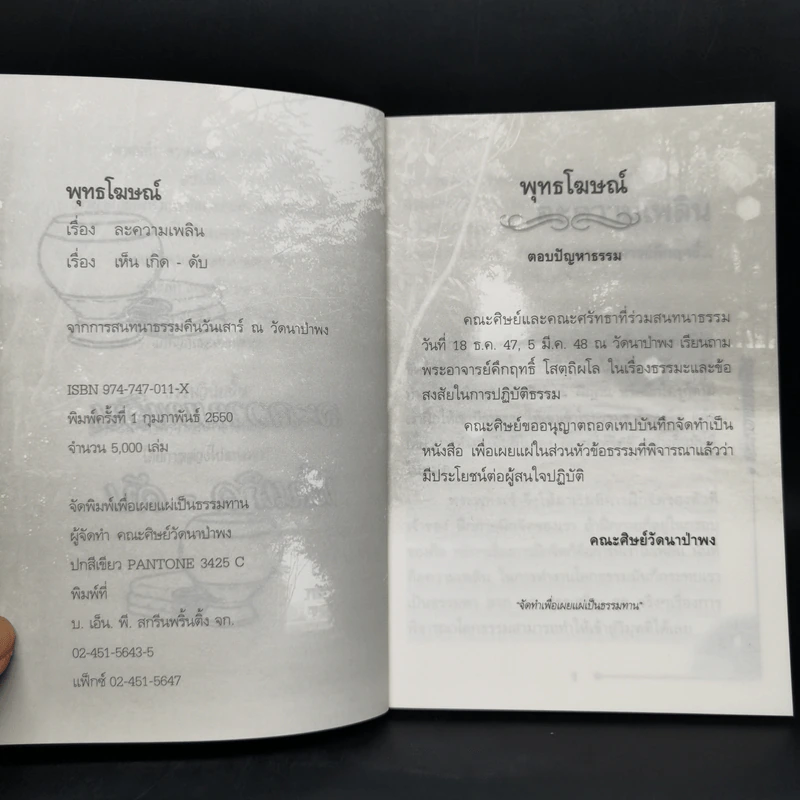 พุทธโฆษณ์
เรื่อง ละความเพลิน
เรื่อง เห็น เกิด - ดับ
จากการสนทนาธรรมคืนวันเสาร์ ณ วัดนาป่าพง
ISBN 974-747-011-X
พิมพ์ครั้งที่ 1 กุมภาพันธ์ 2550
จำนวน 5,000 เล่ม
จัดพิมพ์เพื่อเผยแผ่เป็นธรรมทาน
ผู้จัดทำ คณะศิษย์วัดนาป่าพง
ปกสีเขียว PANTONE 3425 C
พิมพ์ที่
บ. เอ็น. พี. สกรีนพริ้นติ้ง จก.
02-451-5643-5
แฟ็กซ์ 02-451-5647
พุทธโฆษณ์
ตอบปัญหาธรรม
คณะศิษย์และคณะศรัทธาที่ร่วมสนทนาธรรม
วันที่ 18 ธ.ค. 47, 5 มี.ค. 48 ณ วัดนาป่าพง เรียนถาม
พระอาจารย์คึกฤทธิ์ โสตฺถิผโล ในเรื่องธรรมะและข้อ
สงสัยในการปฏิบัติธรรม
คณะศิษย์ขออนุญาตถอดเทปบันทึกจัดทำเป็น
หนังสือ เพื่อเผยแผ่ในส่วนหัวข้อธรรมที่พิจารณาแล้วว่า
มีประโยชน์ต่อผู้สนใจปฏิบัติ
คณะศิษย์วัดนาป่าพง
"จัดทำเพื่อเผยแผ่เป็นธรรมทาน"